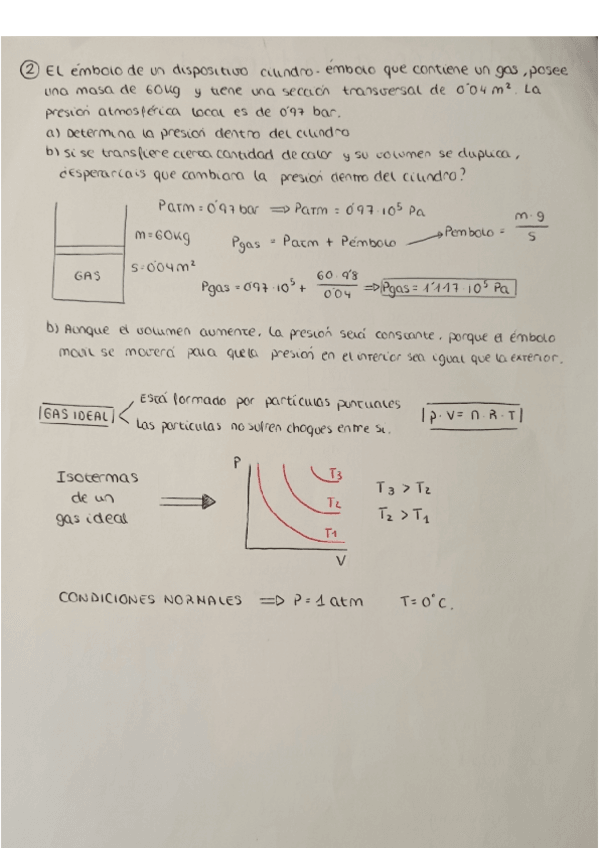 ② El émbolo de un dispositivo cilindro-émbolo que contiene un gas, posee
una masa de 60kg y tiene una sección transversal de 0'04 m². La
presión atmosférica local es de 0'97 bar.
a) Determina la presión dentro del cilindro
b) Si se transfiere cierta cantidad de calor y su volumen se duplica,
¿esperaríais que cambiara la presión dentro del cilindro?
Patm = 0'97 bar ⇒ Patm = 0'97·10⁵ Pa
m = 60kg
Pgas = Patm + Pémbolo → Pembolo = m·g / S
S = 0'04m²
GAS
Pgas = 0'97·10⁵ + 60·9'8 / 0'04 ⇒ Pgas = 1'117·10⁵ Pa
b) Aunque el volumen aumente, la presión será constante, porque el émbolo
móvil se moverá para que la presión en el interior sea igual que la exterior.
GAS IDEAL
Está formado por partículas puntuales
Las partículas no sufren choques entre sí.
P·V = n·R·T
Isotermas
de un
gas ideal
P
T3
T2
T1
V
T3 > T2
T2 > T1
CONDICIONES NORMALES ⇒ P = 1 atm T = 0°C.